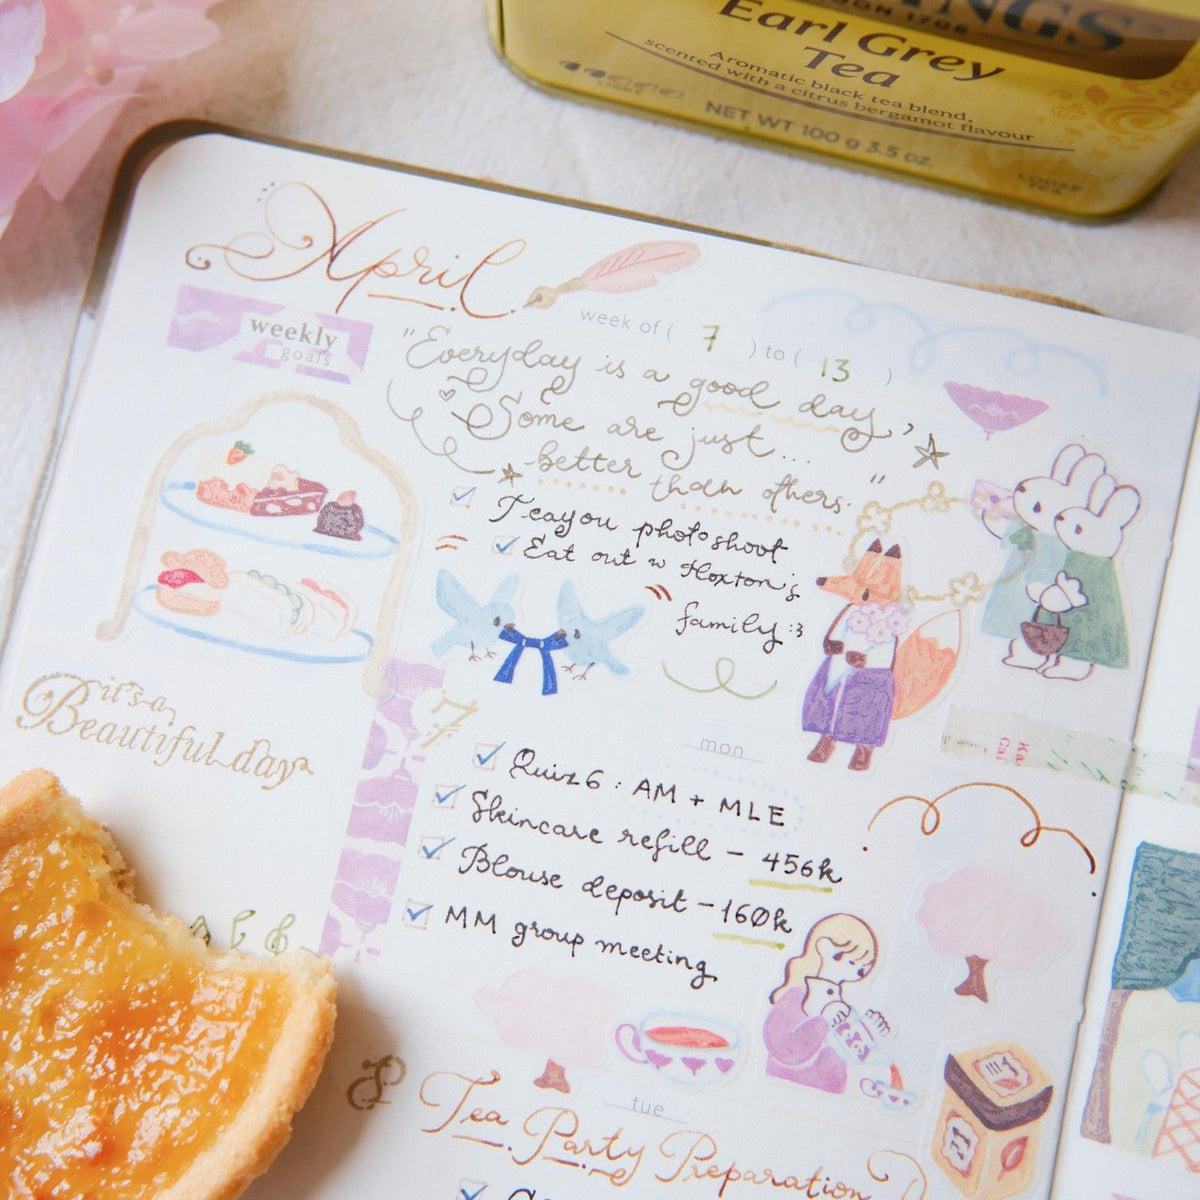 INGS
DON 1706
Earl Grey
Tea
Aromatic black tea blend,
scented with a citrus bergamot flavour
LIGHT
NET WT 100 g 3.5 oz.
LOOSE
TEA
April
week of ( 7 ) to ( 13 )
weekly
goals
"Everyday is a good day,
Some are just...
better than others."
Teayou photoshoot
Eat out w Hoxton's
family :3
it's a
Beautiful day
7
mon
Quiz 6 : AM + MLE
Skincare refill - 456k
Blouse deposit - 160k
MM group meeting
8
tue
Tea Party Preparation